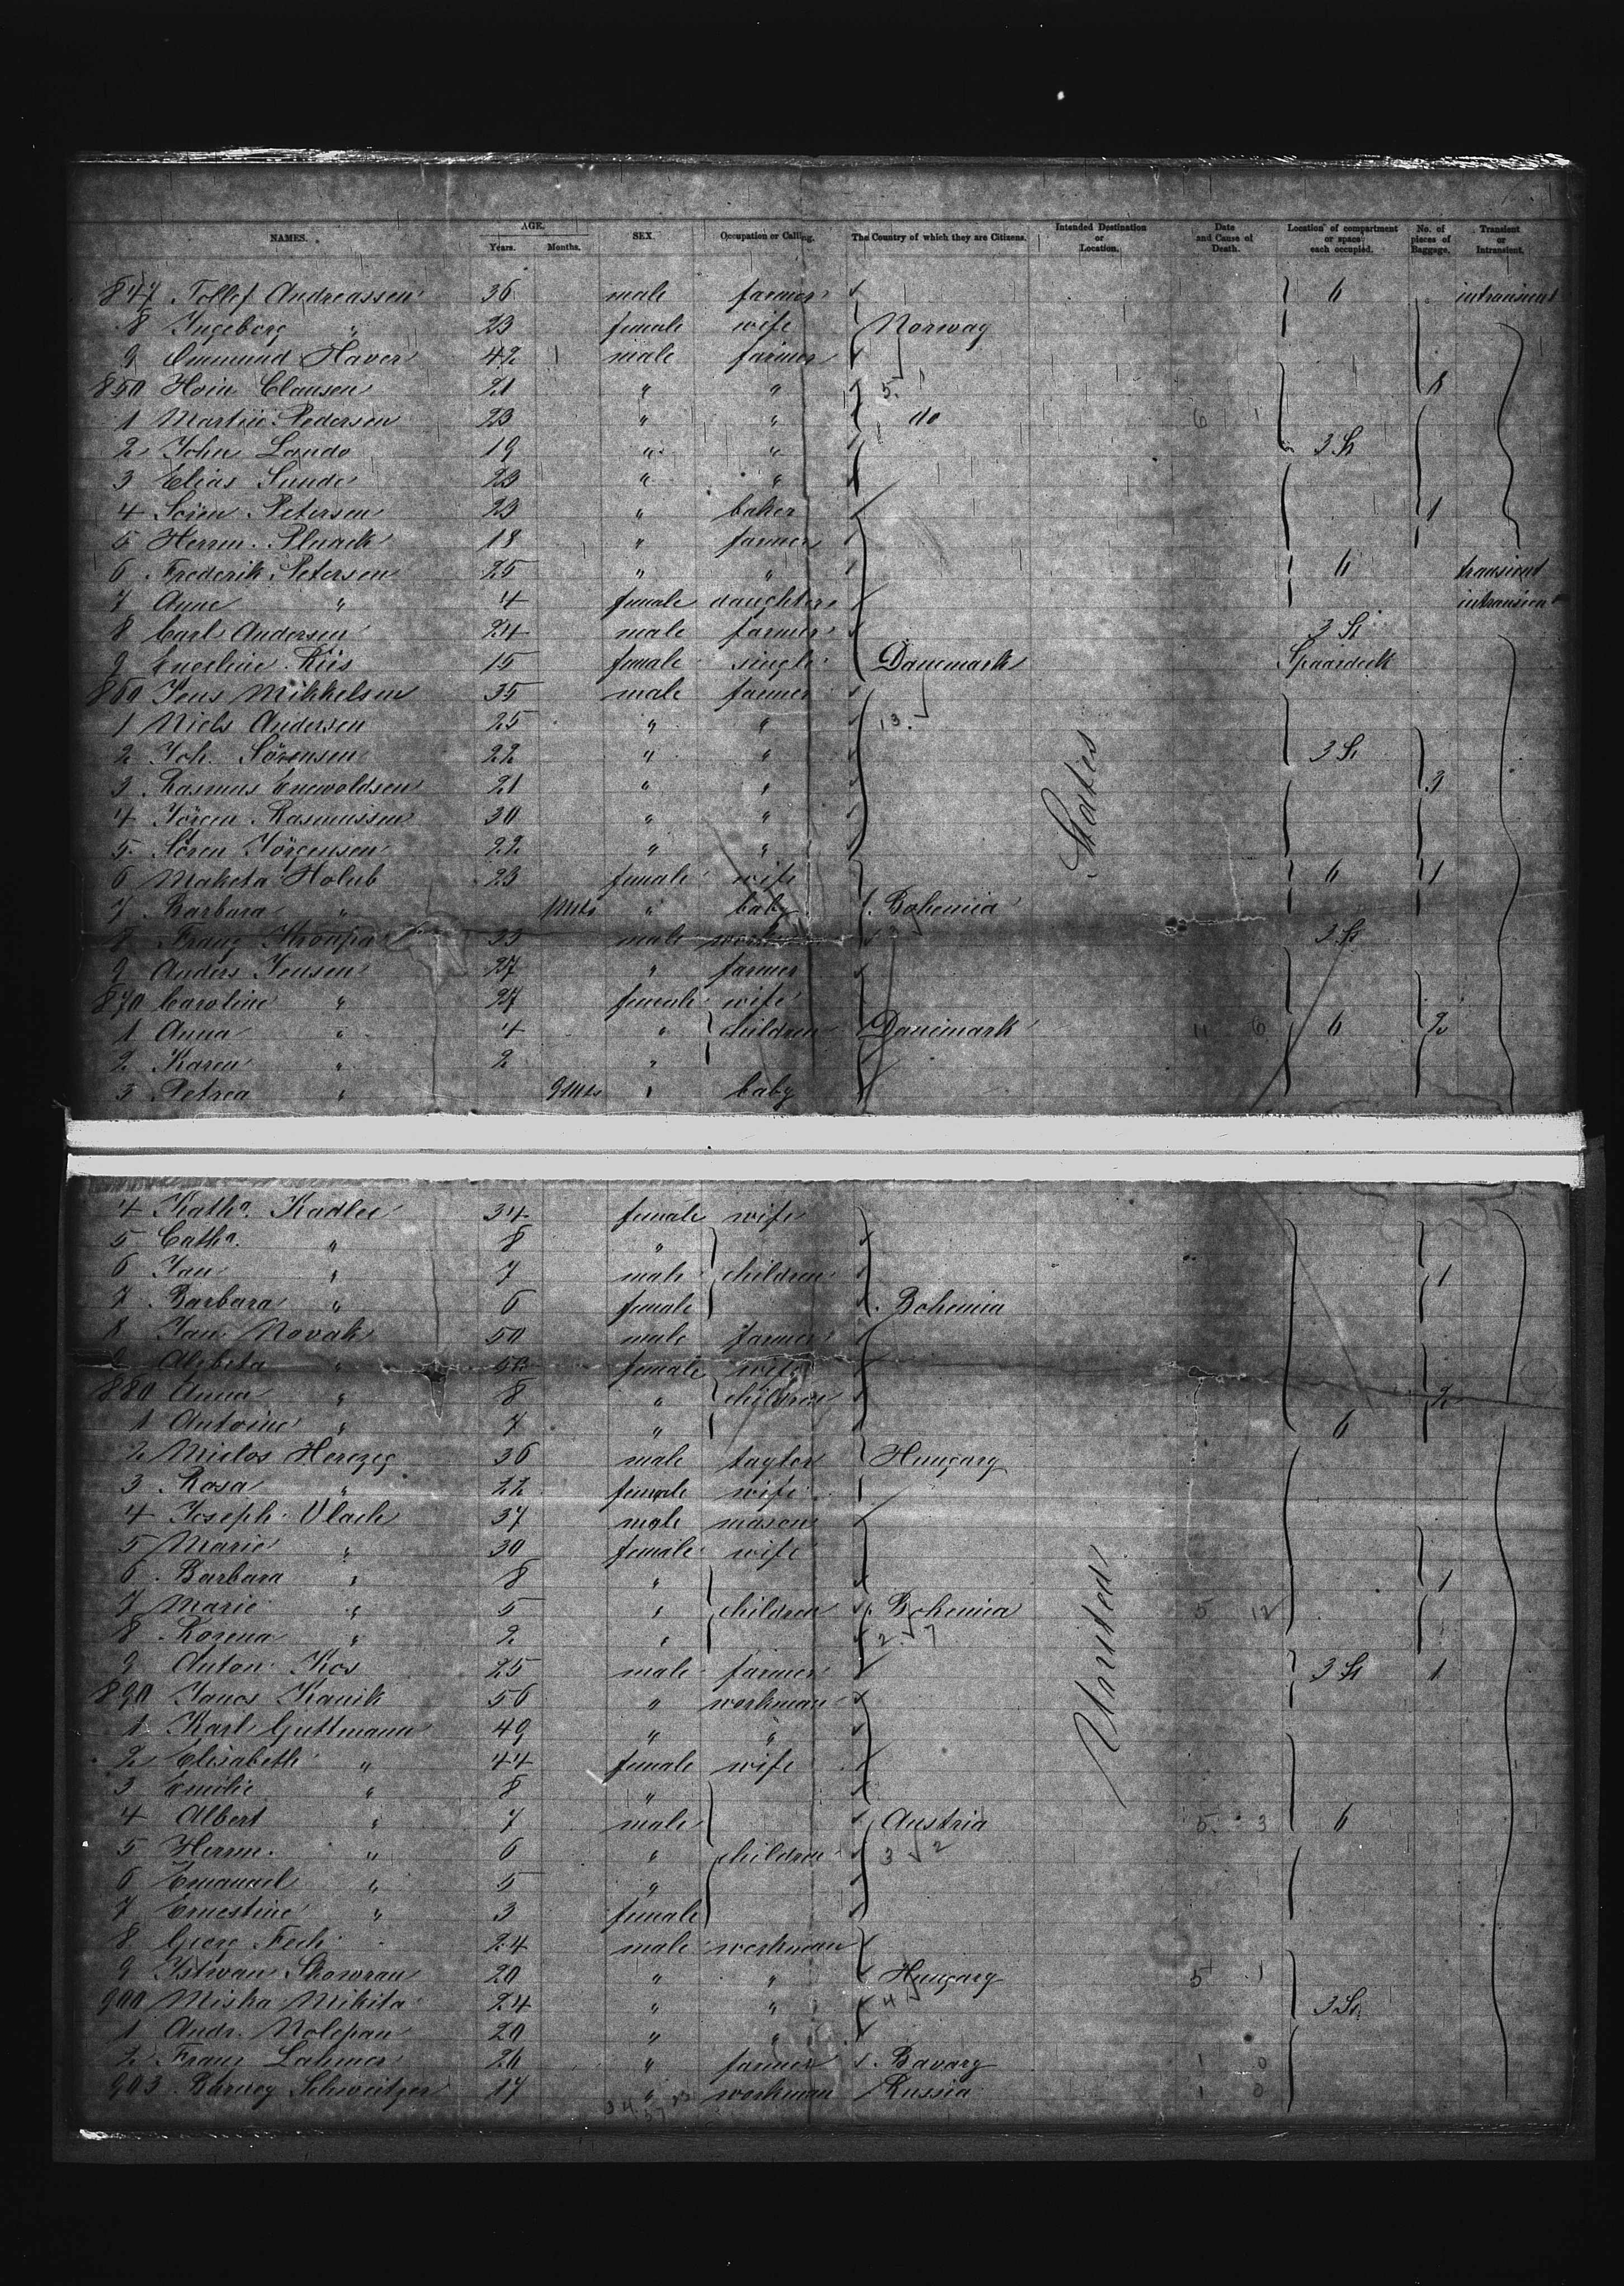 NAMES. AGE. Years. Months. SEX. Occupation or Calling. The Country of which they are Citizens. Intended Destination or Location. Date and Cause of Death. Location of compartment or space each occupied. No. of pieces of Baggage. Transient or Intransient.
847 Tollef Andreassen 36 male farmer 6 intransient
8 Ingeborg " 23 female wife Norway
9 Ommund Haver 42 male farmer
850 Hein Clausen 21 " " 5. 8
1 Martin Pedersen 23 " " do 6 1
2 John Lande 19 " " 3 St
3 Elias Sunde 23 " "
4 Sören Petersen 23 " baker 1
5 Herrm. 18 " farmer
6 Frederik Petersen 25 " " 6 transient
7 Anne " 4 female daughter intransient
8 Carl Andersen 24 male farmer 3 St
9 Engeline Riis 15 female single Danemark Spaardeck
860 Jens Mikkelsen 35 male farmer
1 Niels Andersen 25 " " 13.
2 Joh. Sörensen 22 " " 3 St
3 Rasmus Enewoldsen 21 " " States 3
4 Jörgen Rasmussen 30 " "
5 Sören Jörgensen 22 " "
6 Maketa Holub 23 female wife 6 1
7 Barbara " " baby Bohemia
8 Franz Kroupa 33 male workman 3 St
9 Anders Jensen 27 " farmer
870 Caroline " 27 female wife
1 Anna " 4 " children Danemark 11 6 6 2
2 Karen " 2 "
3 Petrea " 9 Mts " baby
4 Katha. Kadlec 34 female wife
5 Catha. " 8 "
6 Jan " 7 male children 1
7 Barbara " 6 female Bohemia
8 Jan Novak 50 male farmer
9 Alzbeta " female wife
880 Anna " 8 " children 2
1 Antoine " 7 " 6
2 Miclos Herczeg 36 male taylor Hungary
3 Rosa " 22 female wife
4 Joseph Vlach 37 male mason
5 Marie " 30 female wife
6 Barbara " 8 " 1
7 Marie " 5 " children Bohemia 5 12
8 Rozena " 2 " 2 7
9 Anton Kos 25 male farmer 3 St 1
890 Janos Kanik 56 " workman United
1 Karl Guttmann 49 " "
2 Elisabeth " 44 female wife
3 Emilie " 8 "
4 Albert " 7 male Austria 5. 3 6
5 Herrm. " 6 " children 3 2
6 Emanuel " 5 "
7 Ernestine " 3 female
8 Georg Fech 24 male workman
9 Istwan Skowran 20 " " Hungary 5 1
900 Miska Mikita 24 " " 4 3 St
1 Andr. Molepan 20 " "
2 Franz Lahmer 26 " farmer Bavary 1 0
903 Barney Schweitzer 17 " workman Russia 1 0